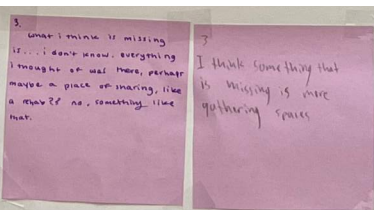 3.
what i think is missing
is... i don't know. everything
i thought of was there, perhaps
maybe a place of sharing, like
a rehab?? no, something like
that.
3
I think something that
is missing is more
gathering spaces